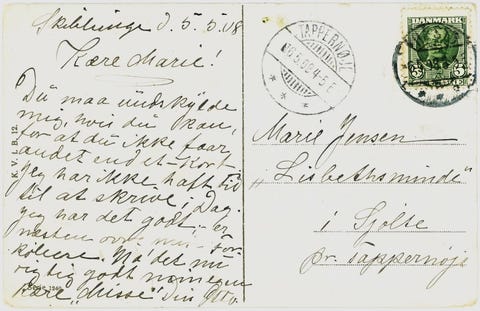 Skibbinge d. 5.5.08
Kære Marie!
Du maa undskylde
mig, hvis du kan,
for at du ikke faar
andet end et Kort
jeg har ikke haft tid
til at skrive i Dag.
jeg har det godt, er
næsten over min For-
kølelse. Ha' det nu
rigtig godt min egen
kære "Misse" din
K. V. i. B. 12.
Serie
TAPPERNØJE
DANMARK
5 5
Marie Jensen
"Lisbethsminde"
i Sjolte
pr. Tappernøje